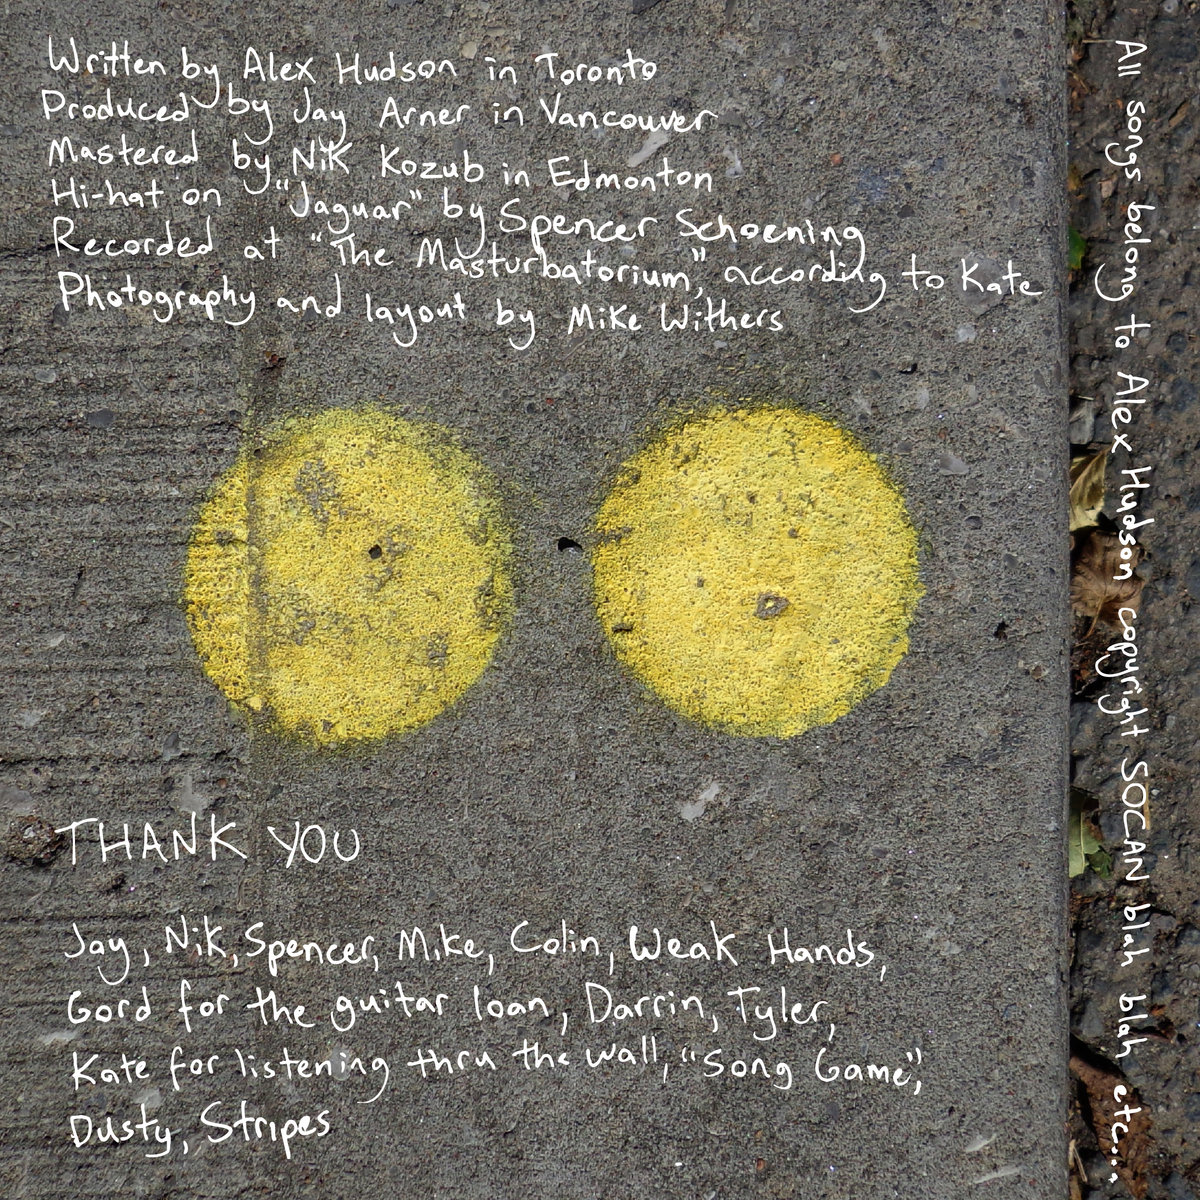 Written by Alex Hudson in Toronto
Produced by Jay Arner in Vancouver
Mastered by Nik Kozub in Edmonton
Hi-hat on "Jaguar" by Spencer Schoening
Recorded at "The Masturbatorium," according to Kate
Photography and layout by Mike Withers
THANK YOU
Jay, Nik, Spencer, Mike, Colin, Weak Hands,
Gord for the guitar loan, Darrin, Tyler,
Kate for listening thru the wall, "Song Game",
Dusty, Stripes
All songs belong to Alex Hudson copyright SOCAN blah blah etc...